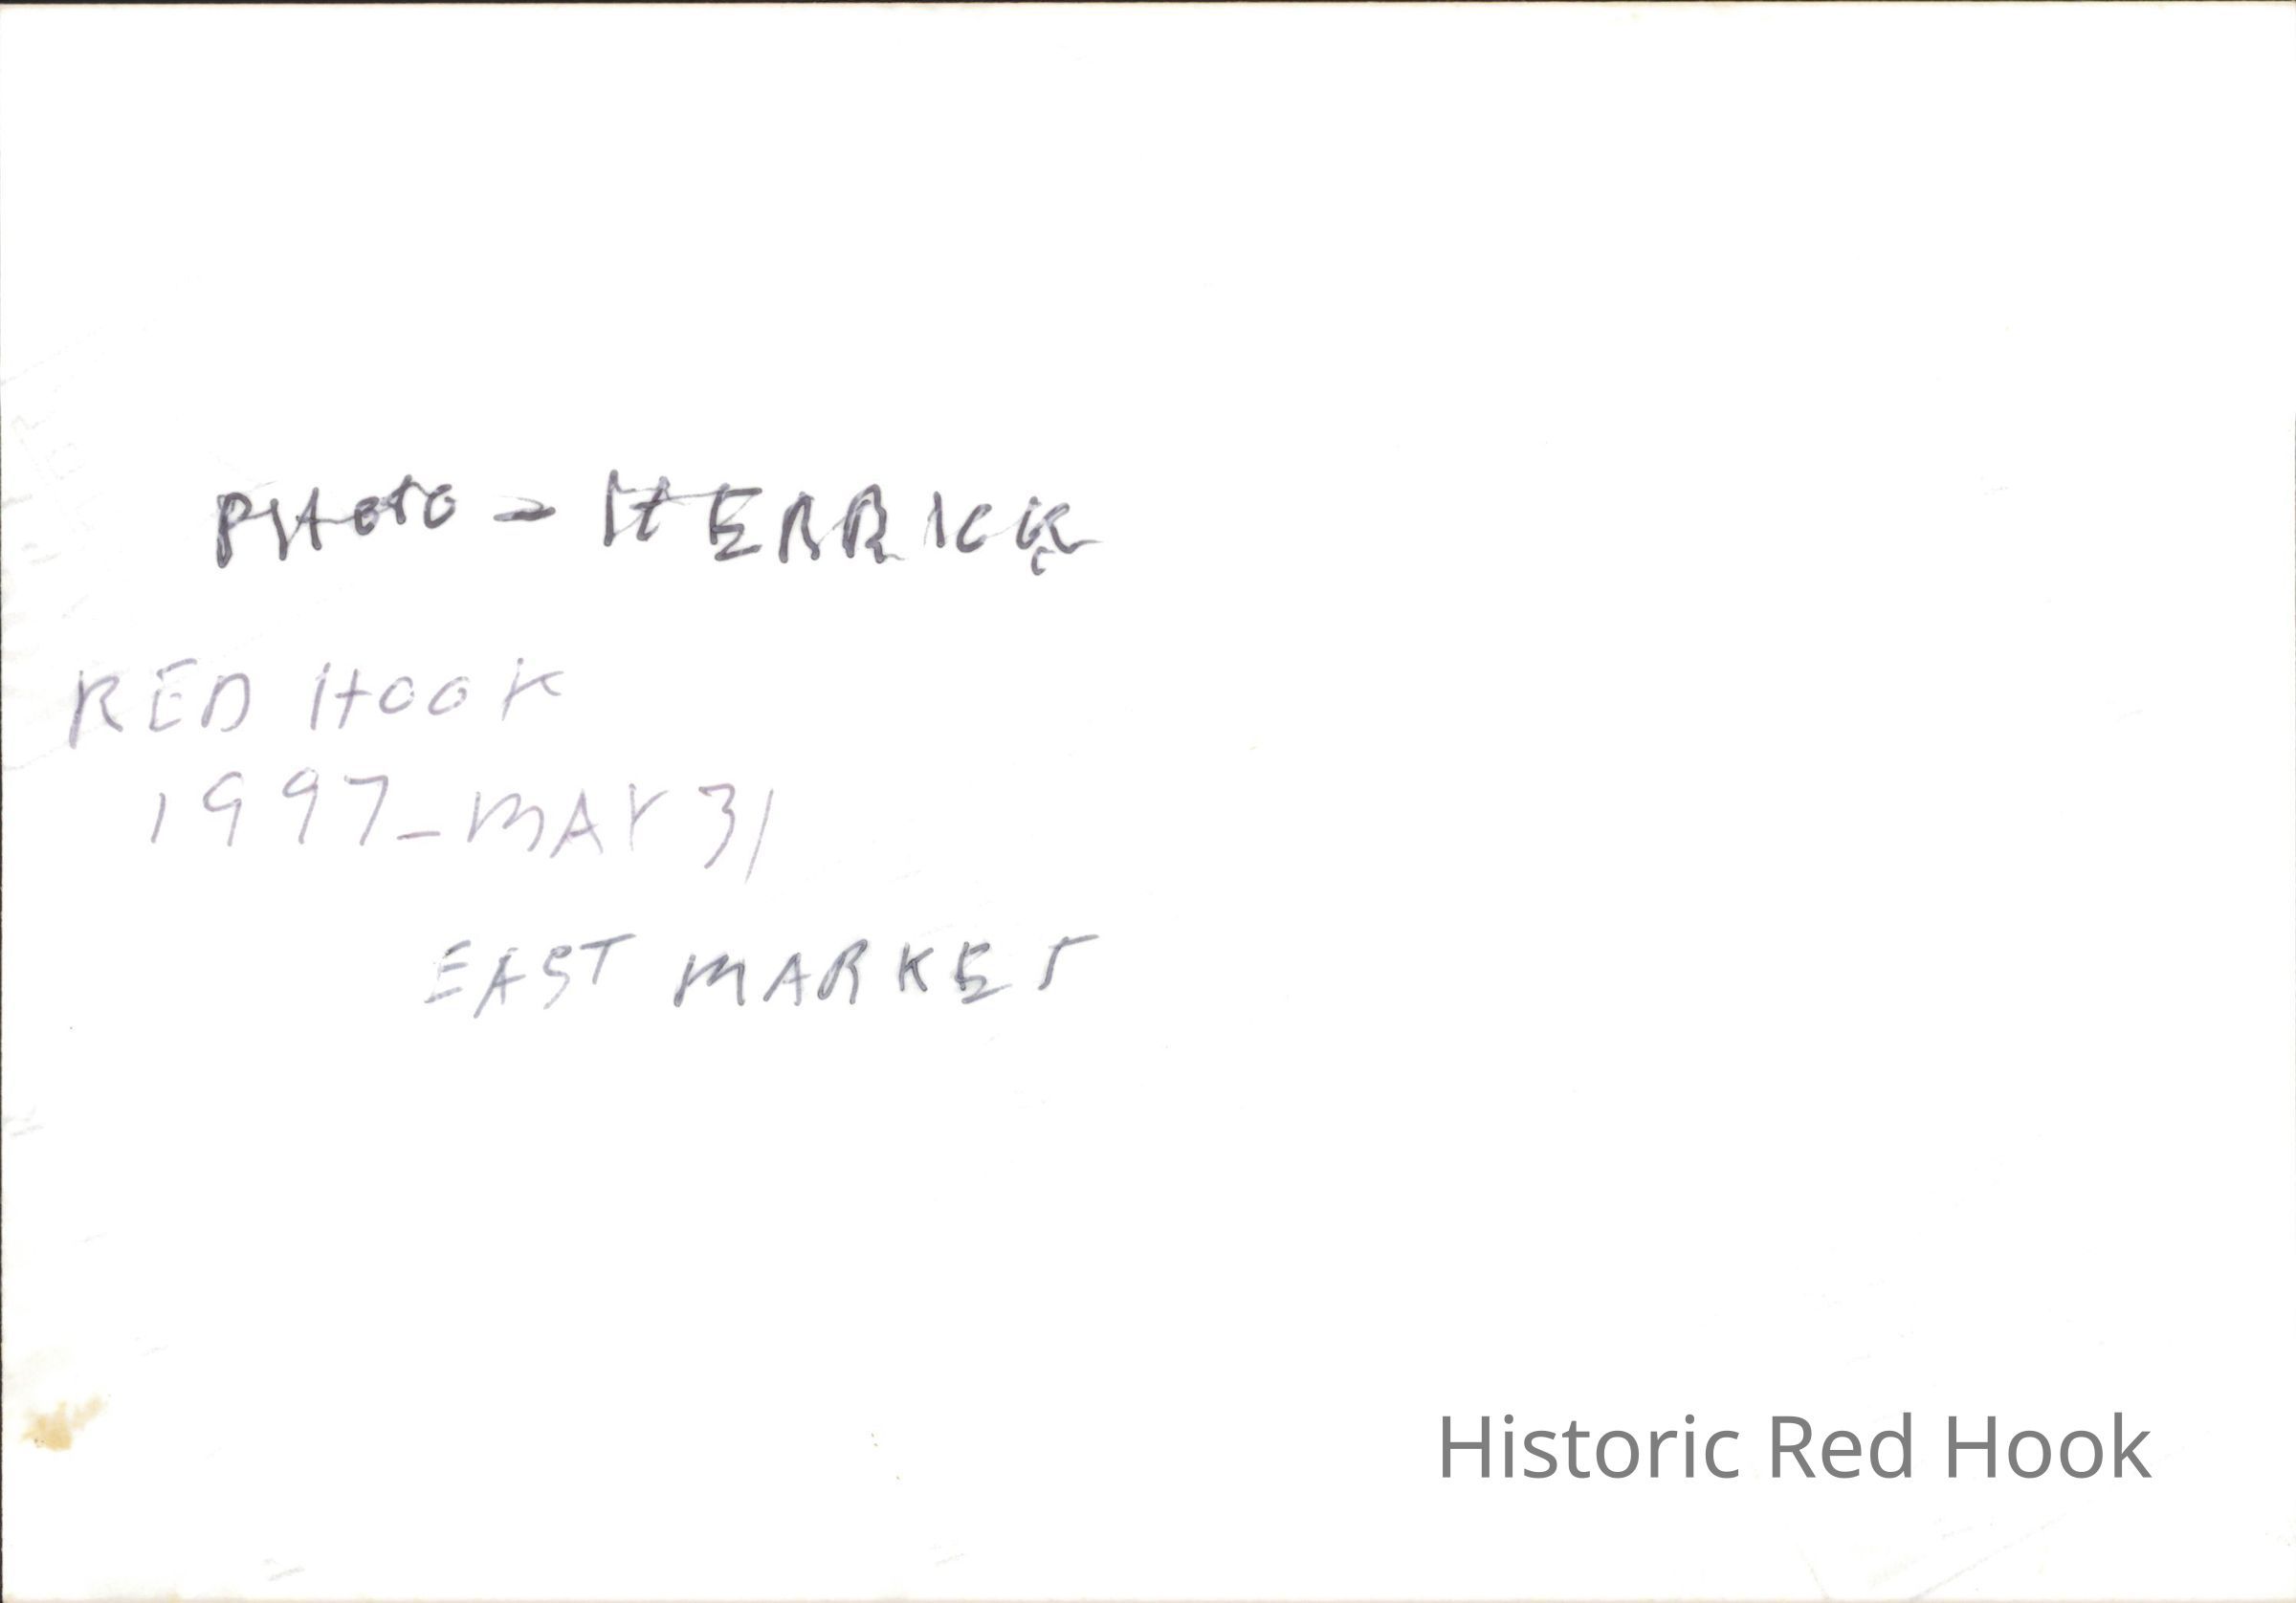 PHOTO - HERRICK
RED HOOK
1997 - MAY 31
EAST MARKET
Historic Red Hook